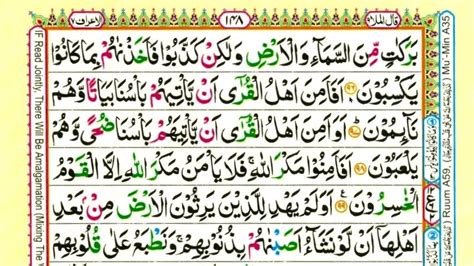 الاعراف ٧
١٤٨
قال الملا ٩
بَرَكٰتٍ مِّنَ السَّمَآءِ وَالْاَرْضِ وَلٰكِنْ كَذَّبُوْا فَاَخَذْنٰهُمْ بِمَا كَانُوْا
يَكْسِبُوْنَ ۝٩٦ اَفَاَمِنَ اَهْلُ الْقُرٰٓى اَنْ يَّاْتِيَهُمْ بَاْسُنَا بَيَاتًا وَّهُمْ
نَآئِمُوْنَ ۝٩٧ اَوَاَمِنَ اَهْلُ الْقُرٰٓى اَنْ يَّاْتِيَهُمْ بَاْسُنَا ضُحًى وَّهُمْ
يَلْعَبُوْنَ ۝٩٨ اَفَاَمِنُوْا مَكْرَ اللّٰهِ ۚ فَلَا يَاْمَنُ مَكْرَ اللّٰهِ اِلَّا الْقَوْمُ
الْخٰسِرُوْنَ ۝٩٩ اَوَلَمْ يَهْدِ لِلَّذِيْنَ يَرِثُوْنَ الْاَرْضَ مِنْۢ بَعْدِ
اَهْلِهَآ اَنْ لَّوْ نَشَآءُ اَصَبْنٰهُمْ بِذُنُوْبِهِمْ ۚ وَنَطْبَعُ عَلٰى قُلُوْبِهِمْ
IF Read Jointly, There Will Be Amalgamation (Mixing The
) Mu'-Min A35
) Ruum A59,